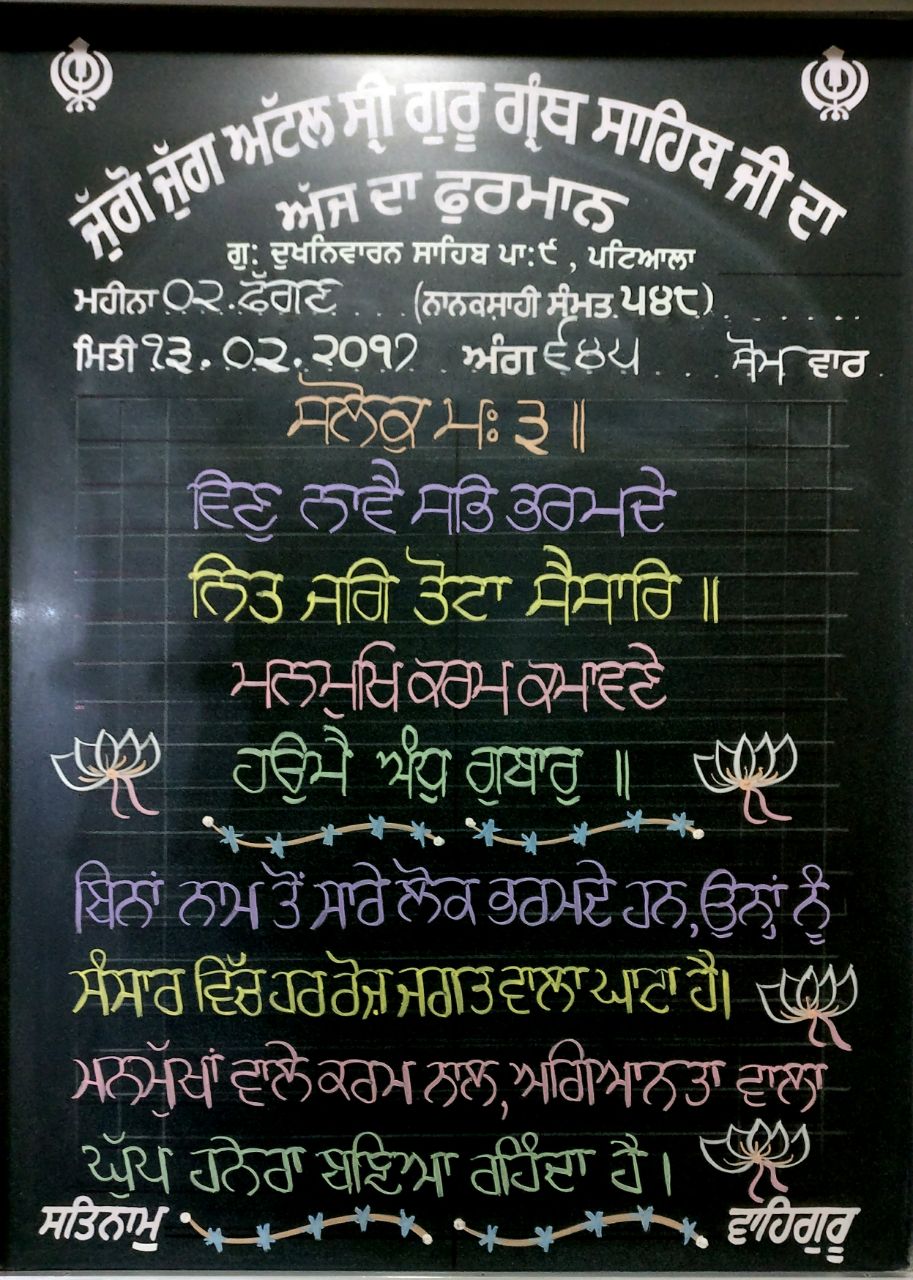 ਜੁੱਗੋ ਜੁੱਗ ਅੱਟਲ ਸ੍ਰੀ ਗੁਰੂ ਗ੍ਰੰਥ ਸਾਹਿਬ ਜੀ ਦਾ
ਅੱਜ ਦਾ ਫੁਰਮਾਨ
ਗੁ: ਦੁਖਨਿਵਾਰਨ ਸਾਹਿਬ ਪਾ:੯, ਪਟਿਆਲਾ
ਮਹੀਨਾ ੦੨.ਫੱਗਣ (ਨਾਨਕਸ਼ਾਹੀ ਸੰਮਤ ੫੪੮)
ਮਿਤੀ ੧੩.੦੨.੨੦੧੭ ਅੰਗ ੬੪੫ ਸੋਮ ਵਾਰ
ਸਲੋਕੁ ਮਃ ੩ ॥
ਵਿਣੁ ਨਾਵੈ ਸਭਿ ਭਰਮਦੇ
ਨਿਤ ਜਗਿ ਤੋਟਾ ਸੈਸਾਰਿ ॥
ਮਨਮੁਖਿ ਕਰਮ ਕਮਾਵਣੇ
ਹਉਮੈ ਅੰਧੁ ਗੁਬਾਰੁ ॥
ਬਿਨਾਂ ਨਾਮ ਤੋਂ ਸਾਰੇ ਲੋਕ ਭਰਮਦੇ ਹਨ,ਉਨ੍ਹਾਂ ਨੂੰ
ਸੰਸਾਰ ਵਿੱਚ ਹਰ ਰੋਜ਼ ਜਗਤ ਵਾਲਾ ਘਾਟਾ ਹੈ।
ਮਨਮੁੱਖਾਂ ਵਾਲੇ ਕਰਮ ਨਾਲ,ਅਗਿਆਨਤਾ ਵਾਲਾ
ਘੁੱਪ ਹਨੇਰਾ ਬਣਿਆ ਰਹਿੰਦਾ ਹੈ।
ਸਤਿਨਾਮੁ ਵਾਹਿਗੁਰੂ